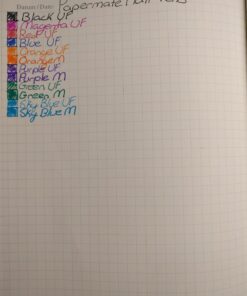 Datum/Date
Papermate Flair Pens
Black UF
Magenta UF
Red UF
Blue UF
Orange UF
Orange M
Purple UF
Purple M
Green UF
Green M
Sky Blue UF
Sky Blue M